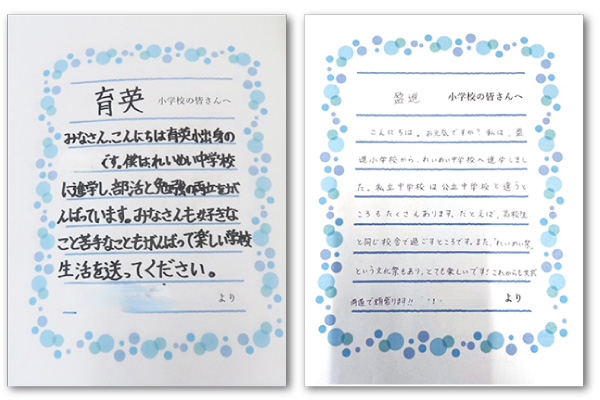 育英 小学校の皆さんへ
みなさん、こんにちは育英小出身の
です。僕はれいめい中学校
に進学し、部活と勉強の両立をが
んばっています。みなさんも好きな
こと苦手なこともがんばって楽しい学校
生活を送ってください。
より
小学校の皆さんへ
こんにちは。お元気ですか？私は、
進小学校から、れいめい中学校へ進学しまし
た。私立中学校は公立中学校と違うと
ころもたくさんあります。たとえば、高校生
と同じ校舎で過ごすところです。また、「れいめい祭」
という文化祭もあり、とても楽しいです！これからも文武
両道で頑張ります!!
より